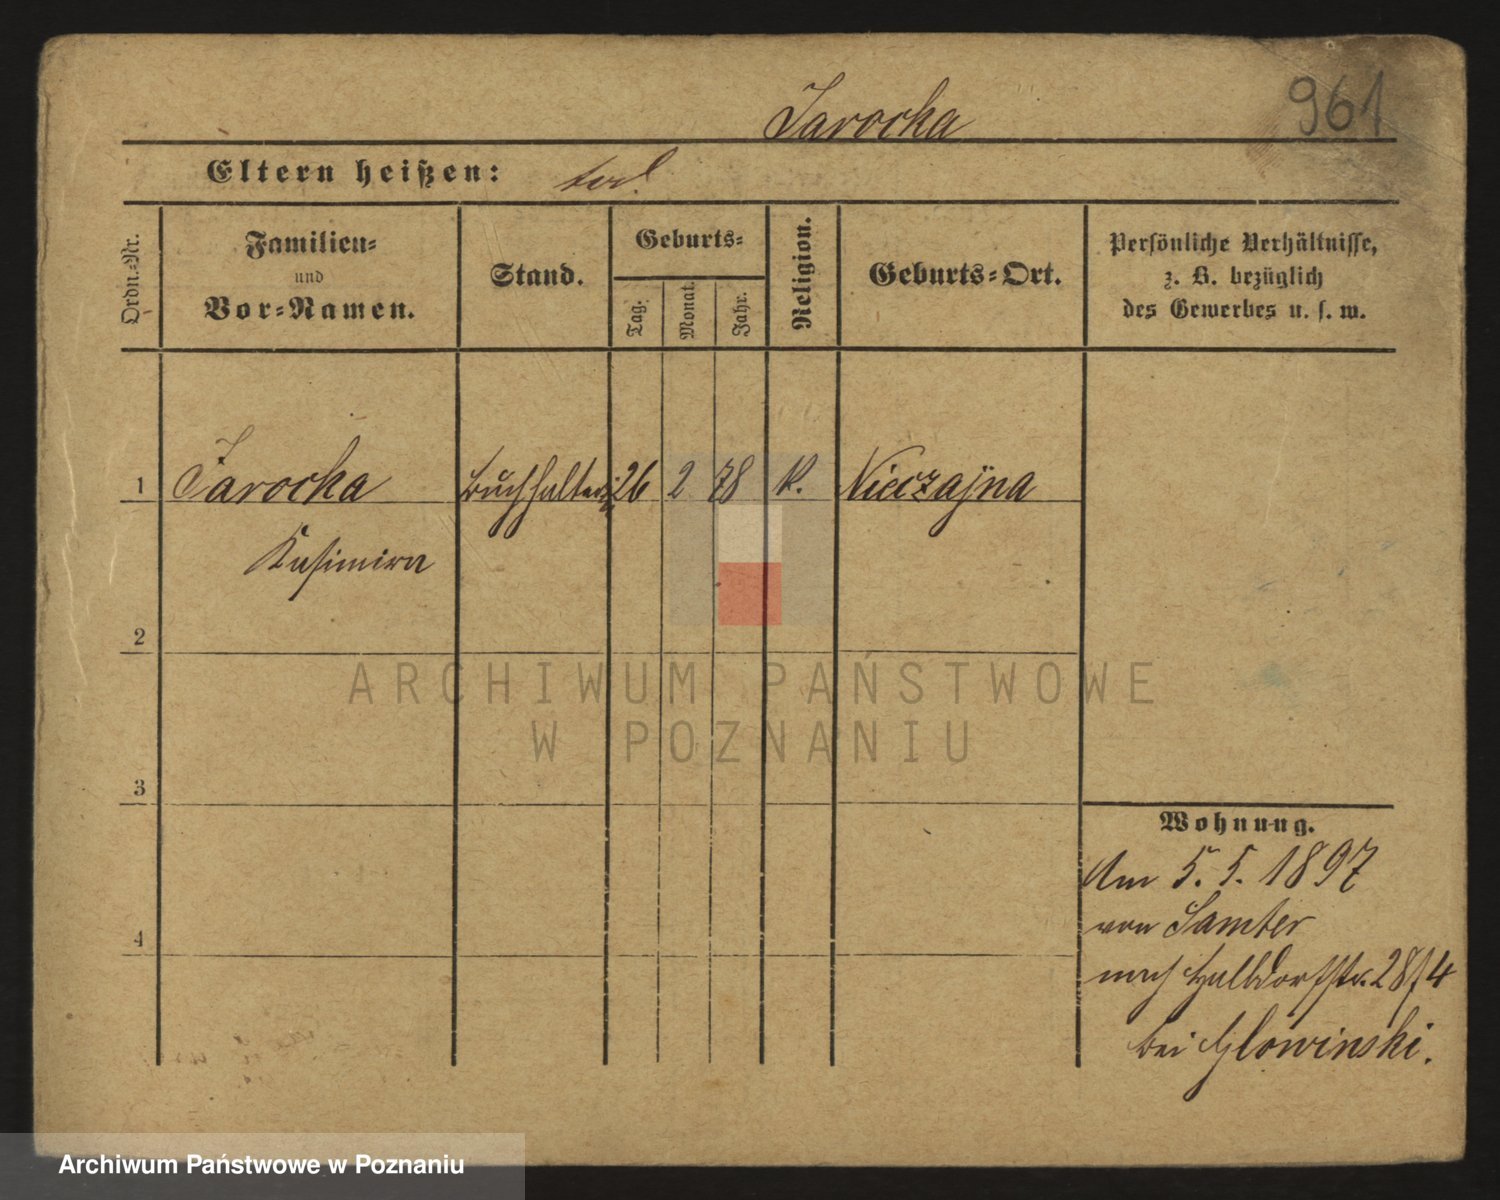 961
Jarocka
Eltern heißen: tod.
Ordn.-Nr.
Familien-
und
Vor-Namen.
Stand.
Geburts-
Tag.
Monat.
Jahr.
Religion.
Geburts-Ort.
Persönliche Verhältnisse,
z. B. bezüglich
des Gewerbes u. s. w.
1 Jarocka Buchhalterin 26 2 78 K. Nieczajna
Kasimira
2
3
4
Wohnung.
Am 5. 5. 1897
von Samter
nach Halbdorfstr. 28/4
bei Glowinski.
ARCHIWUM PAŃSTWOWE
W POZNANIU
Archiwum Państwowe w Poznaniu